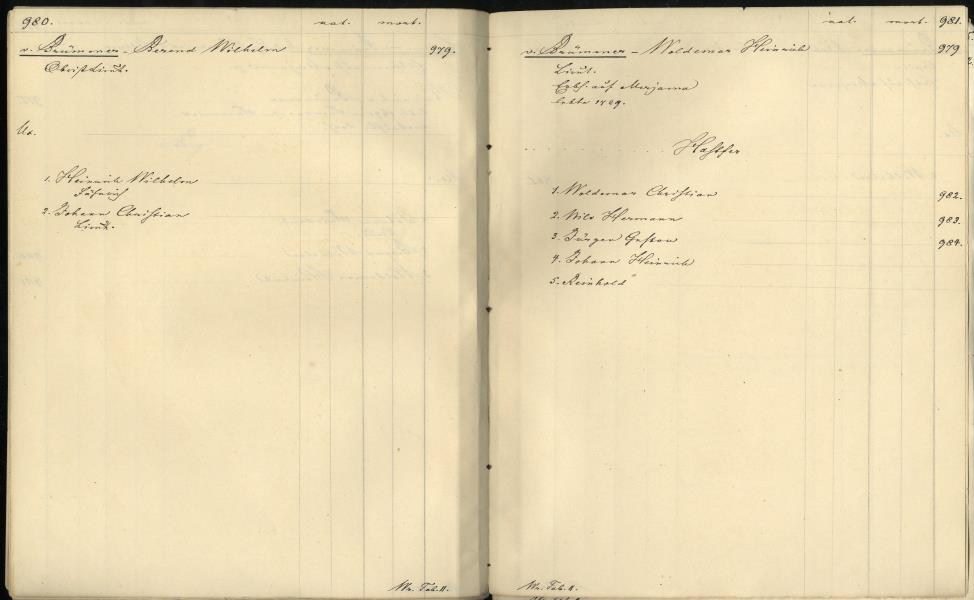 980.
nat. mort.
v. Brümmer - Berend Wilhelm 979.
Obrist Lieut.
Ux.
1. Heinrich Wilhelm
Fähnrich
2. Johann Christian
Lieut.
Wr. Tab. II.
nat. mort. 981.
v. Brümmer - Woldemar Heinrich 979
Lieut.
Erbh. auf Merjama
lebte 1729.
Hastfer
1. Woldemar Christian 982.
2. Nils Hermann 983.
3. Jürgen Gustav 984.
4. Johann Heinrich
5. Reinhold
Wr. Tab. II.